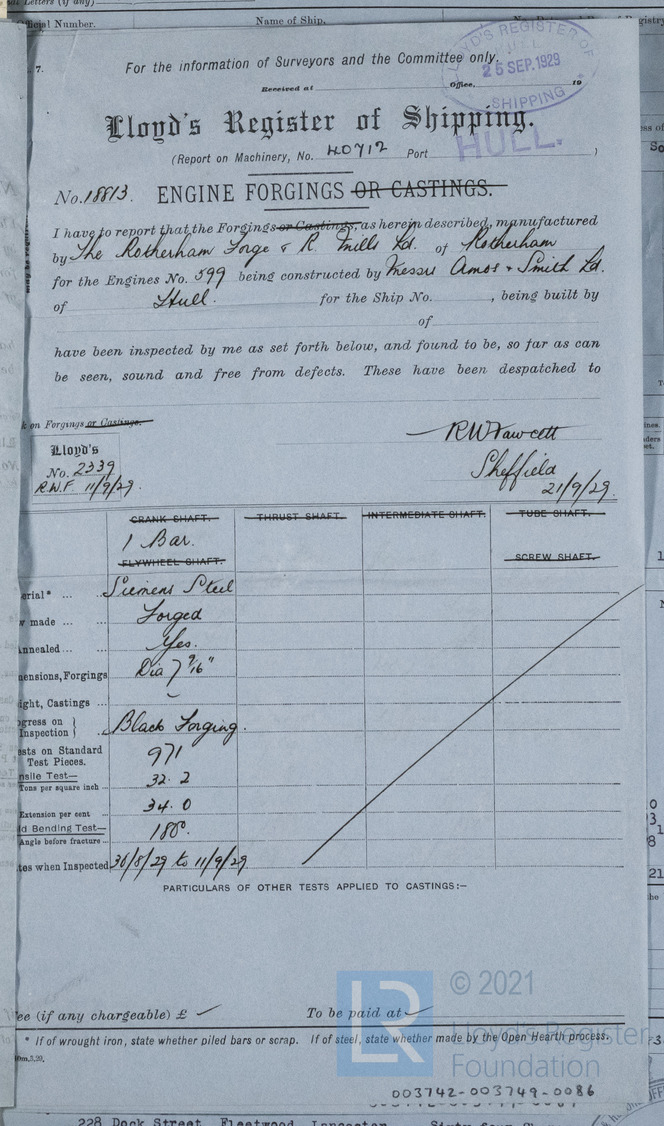 Letters (if any)
Official Number.
Name of Ship.
7.
For the information of Surveyors and the Committee only.
LLOYD'S REGISTER OF SHIPPING
HULL
25 SEP. 1929
HULL.
Received at Office, 19
Lloyd's Register of Shipping.
(Report on Machinery, No. 40712 Port )
No. 18813. ENGINE FORGINGS OR CASTINGS.
I have to report that the Forgings or Castings, as herein described, manufactured
by The Rotherham Forge & R. Mills Ld. of Rotherham
for the Engines No. 599 being constructed by Messrs Amos & Smith Ld.
of Hull. for the Ship No. , being built by
of
have been inspected by me as set forth below, and found to be, so far as can
be seen, sound and free from defects. These have been despatched to
on Forgings or Castings.
Lloyd's
No. 2339
R.W.F. 11/9/29.
RWFawcett
Sheffield
21/9/29.
CRANK SHAFT. THRUST SHAFT. INTERMEDIATE SHAFT. TUBE SHAFT.
1 Bar.
FLYWHEEL SHAFT. SCREW SHAFT.
erial* ... Siemens Steel
made ... Forged
nnealed ... Yes.
ensions, Forgings Dia 7 9/16"
ight, Castings ... -
gress on Inspection Black Forging.
sts on Standard Test Pieces. 971
nsile Test—
Tons per square inch ... 32.2
Extension per cent ... 34.0
d Bending Test—
Angle before fracture ... 180°.
tes when Inspected 30/8/29 to 11/9/29
PARTICULARS OF OTHER TESTS APPLIED TO CASTINGS:—
ee (if any chargeable) £ To be paid at
* If of wrought iron, state whether piled bars or scrap. If of steel, state whether made by the Open Hearth process.
0m,3,29.
LR
© 2021
Lloyd's Register
Foundation
003742-003749-0086
228 Dock Street, Fleetwood, Lancaster